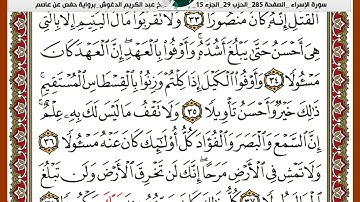 سورة الإسراء _الصفحة 285_الحزب 29_الجزء 15
خ عبد الكريم الدغوش_برواية حفص عن عاصم
ٱلْقَتْلِ إِنَّهُۥ كَانَ مَنصُورًا ٣٣ وَلَا تَقْرَبُوا۟ مَالَ ٱلْيَتِيمِ إِلَّا بِٱلَّتِى
هِىَ أَحْسَنُ حَتَّىٰ يَبْلُغَ أَشُدَّهُۥ وَأَوْفُوا۟ بِٱلْعَهْدِ إِنَّ ٱلْعَهْدَ كَانَ
مَسْـُٔولًا ٣٤ وَأَوْفُوا۟ ٱلْكَيْلَ إِذَا كِلْتُمْ وَزِنُوا۟ بِٱلْقِسْطَاسِ ٱلْمُسْتَقِيمِ
ذَٰلِكَ خَيْرٌ وَأَحْسَنُ تَأْوِيلًا ٣٥ وَلَا تَقْفُ مَا لَيْسَ لَكَ بِهِۦ عِلْمٌ
إِنَّ ٱلسَّمْعَ وَٱلْبَصَرَ وَٱلْفُؤَادَ كُلُّ أُو۟لَـٰٓئِكَ كَانَ عَنْهُ مَسْـُٔولًا ٣٦
وَلَا تَمْشِ فِى ٱلْأَرْضِ مَرَحًا إِنَّكَ لَن تَخْرِقَ ٱلْأَرْضَ وَلَن تَبْلُغَ